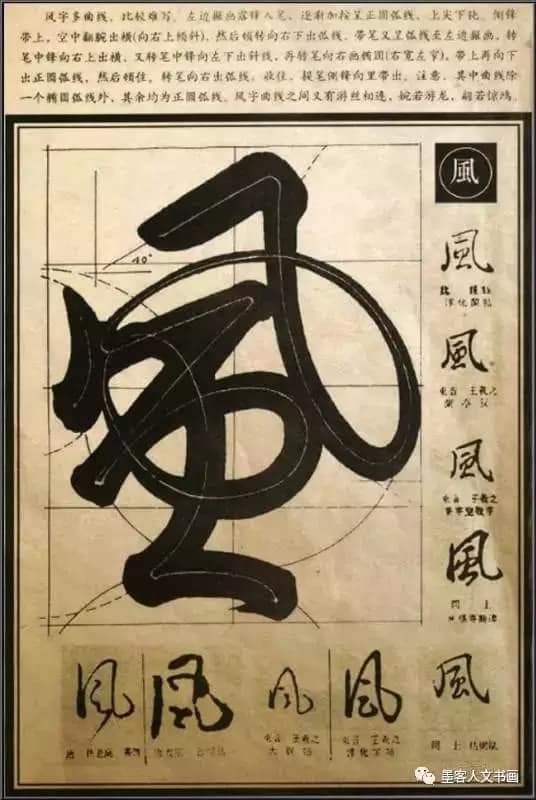 风字多曲线，比较难写。左边撇画露锋入笔，逐渐加按呈正圆弧线，上尖下轮。侧锋
带上，空中翻腕出横(向右上倾斜)，然后顿转向右下出弧线。带笔又呈弧线至左边撇画，转
笔中锋向右上出横，又转笔中锋向左下出斜线，再转笔向右画椭圆(右宽左窄)，带上再向下
出正圆弧线，然后顿住，转笔向右出弧线。收住，提笔侧锋向里带出。注意，其中曲线除
一个椭圆弧线外，其余均为正圆弧线。风字曲线之间又有游丝相连，婉若游龙，翩若惊鸿。
風
40°
風
風
淳化阁帖
風
東晋 王羲之
風
東晋 王羲之
風
同 上
風
風
風
東晋 王羲之
大观帖
風
東晋 王羲之
淳化阁帖
風
同 上
墨客人文书画